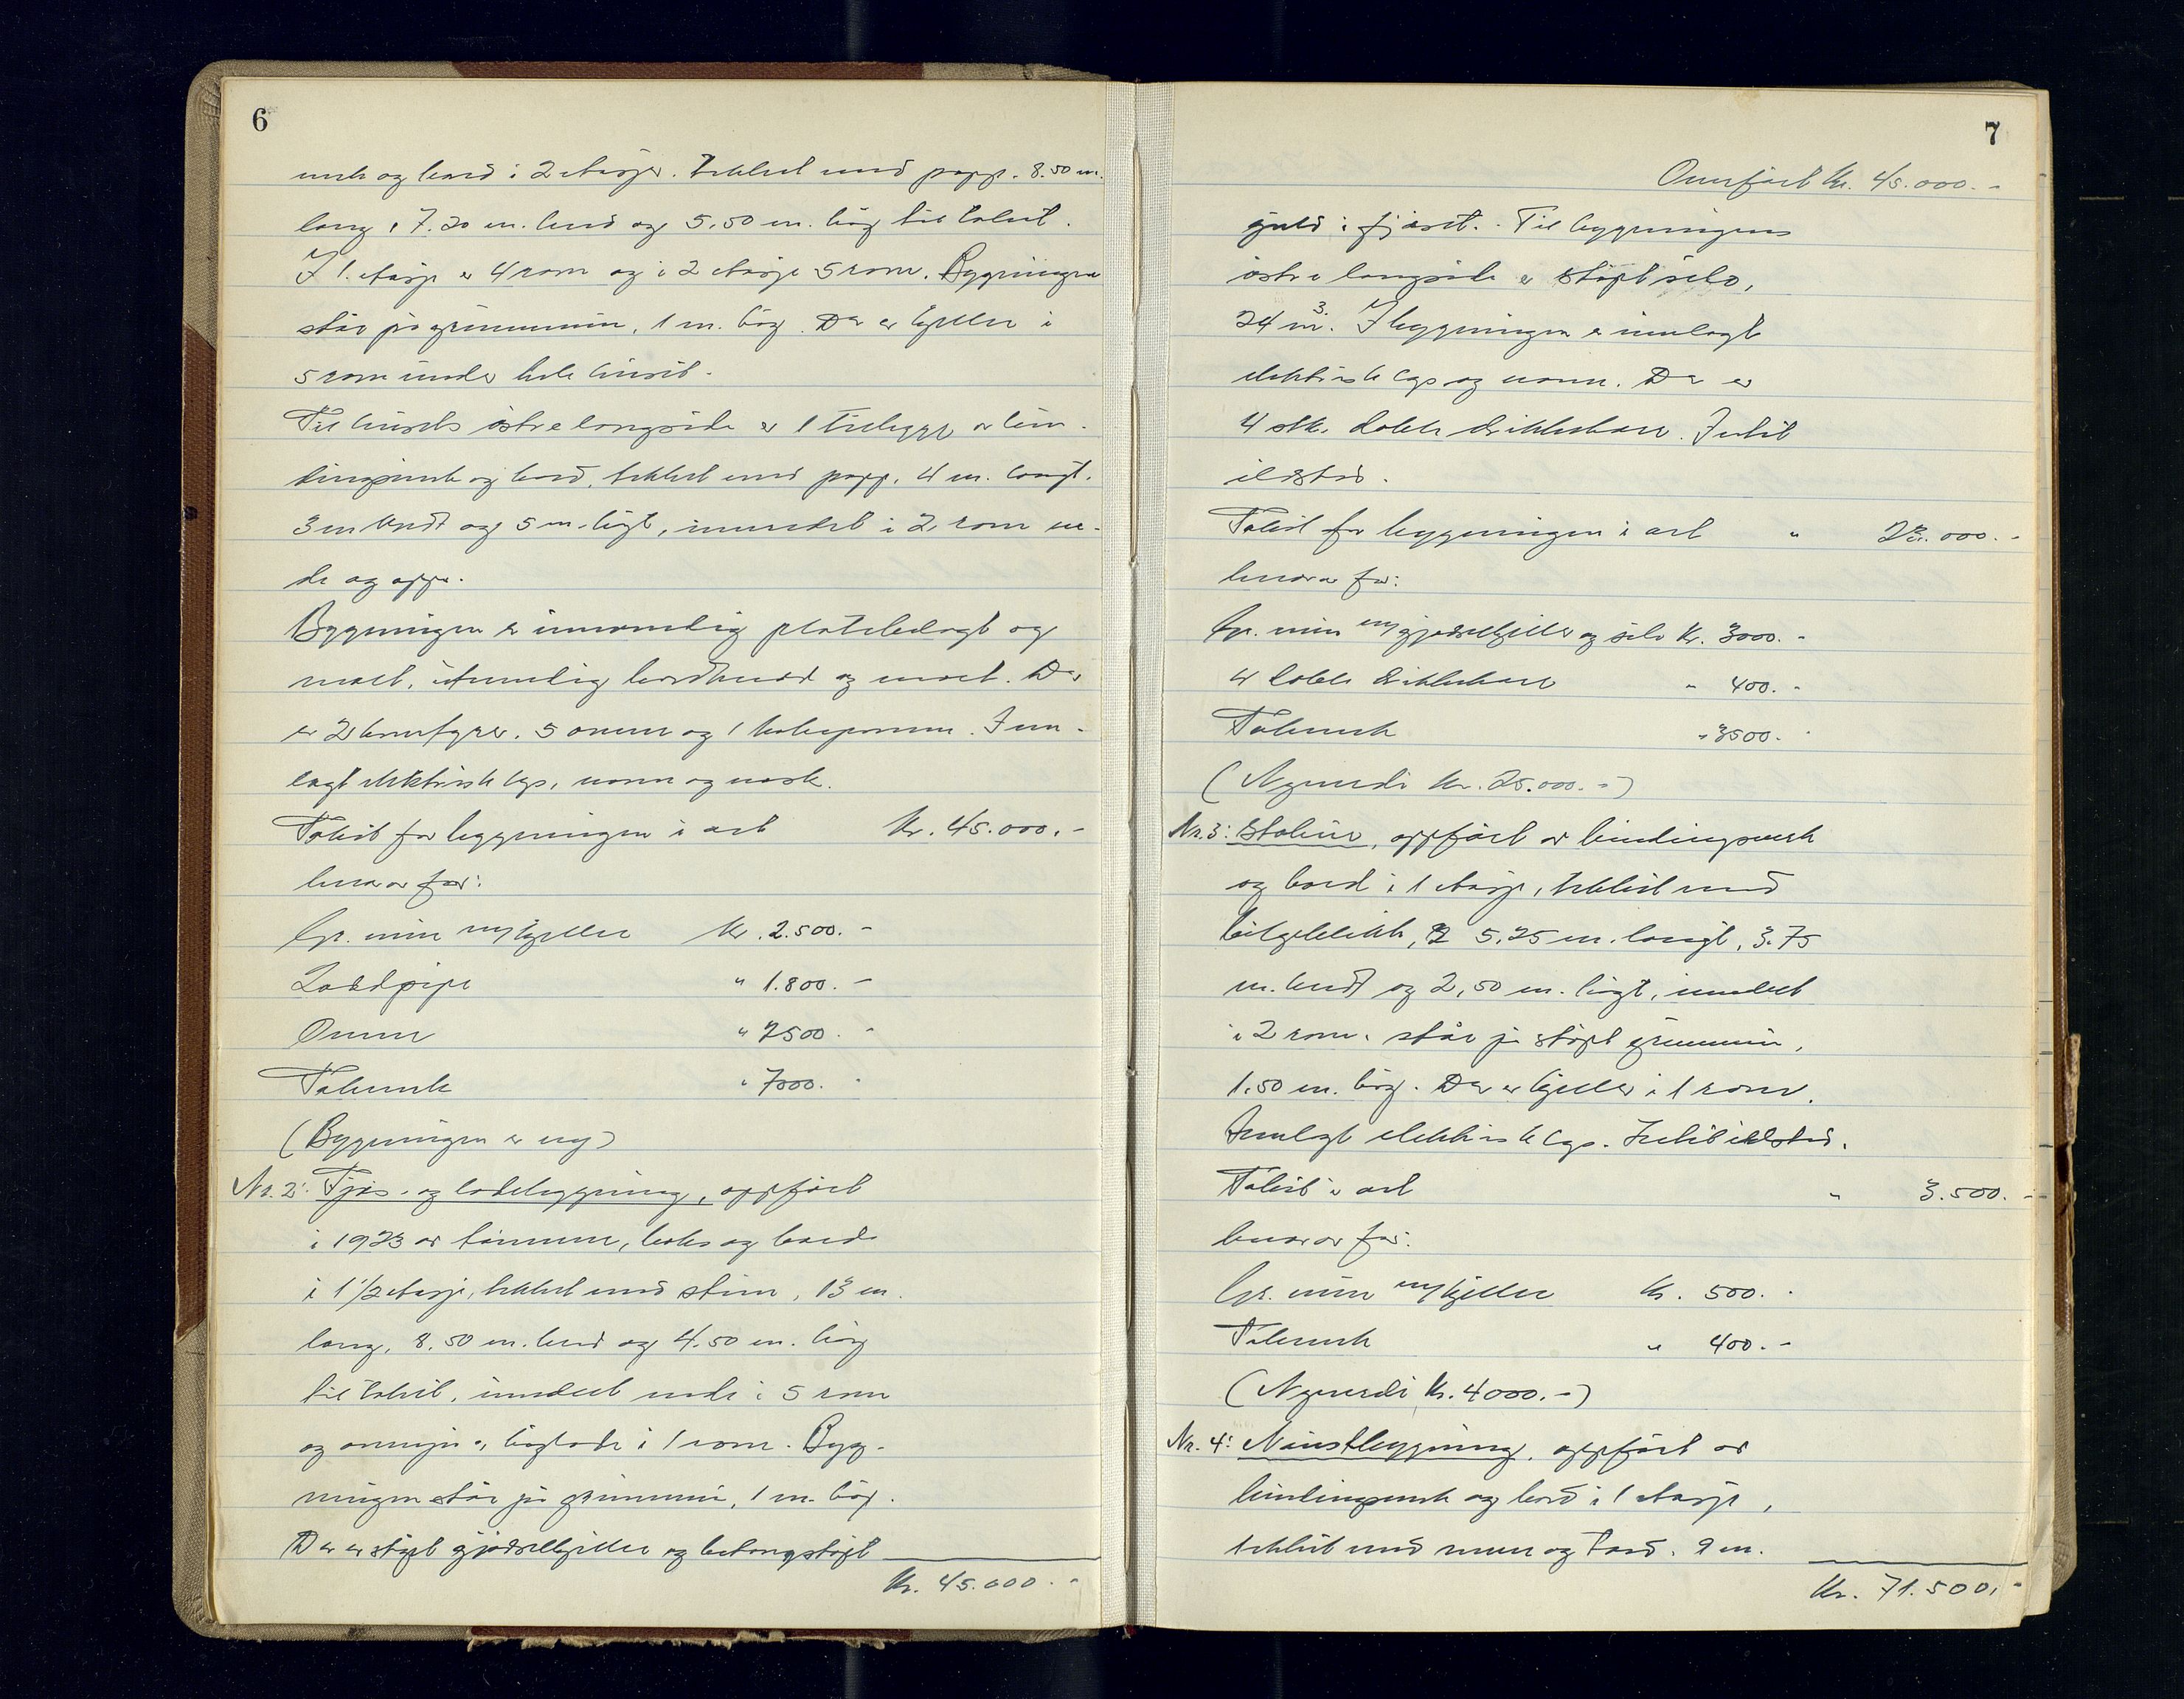 6
verk og bord i 2 etasjer. Tekket med papp. 8.50 m.
lang, 7.20 m. bred og 5,50 m. høg til taket.
I 1. etasje er 4 rom og i 2 etasje 5 rom. Bygningen
står på grunnmur, 1 m. høg. Der er kjeller i
5 rom under hele huset.
Til husets østre langside er 1 tilbygg av bin-
dingsverk og bord, tekket med papp, 4 m. langt,
3 m bredt og 5 m. høgt, innredet i 2 rom ne-
de og oppe.
Bygningen er innvendig platebelagt og
malt, utvendig bordkledd og malt. Der
er 2 komfyrer, 5 ovner og 1 kokegrunn. Inn-
lagt elektrisk lys, vann og vask.
Takst for bygningen i alt Kr. 45.000.-
hvorav for:
Gr. mur m/kjeller Kr. 2.500.-
Loddpipe " 1.800.-
Ovner " 2500.-
Takverk " 7000.-
(Bygningen er ny)
Nr. 2: Fjøs- og ladebygning, oppført
i 1923 av tømmer, laks og bord
i 1 1/2 etasje, tekket med stein, 13 m.
lang, 8,50 m. bred og 4.50 m. høg
til taket, inndelt nede i 5 rom
og ovenpå, høglade i 1 rom. Byg-
ningen står på grunnmur, 1 m. høg.
Der er støpt gjødselkjeller og betongstøpt
Kr. 45.000.-
7
Overført Kr. 45.000.-
gulv i fjøset. Til bygningens
østre langside er støpt silo,
24 m3. I bygningen er innlagt
elektrisk lys og vann. Der er
4 stk. doble drikkekar. Intet
ildsted.
Takst for bygningen i alt " 23.000.-
hvorav for:
Gr. mur m/gjødselkjeller og silo Kr. 3000.-
4 doble drikkekar " 400.-
Takverk " 3500.-
(Nyverdi Kr. 25.000.-)
Nr. 3: Stabur, oppført av bindingsverk
og bord i 1 etasje, tekket med
bølgeblikk, 5,25 m. langt, 3.75
m. bredt og 2,50 m. høgt, inndelt
i 2 rom, står på støpt grunnmur,
1.50 m. høg. Der er kjeller i 1 rom.
Innlagt elektrisk lys. Intet ildsted.
Takst i alt " 3.500.-
hvorav for:
Gr. mur m/kjeller Kr. 500.-
Takverk " 400.-
(Nyverdi Kr. 4000.-)
Nr. 4: Naustbygning, oppført av
bindingsverk og bord i 1 etasje,
tekket med never og torv. 9 m.
Kr. 71.500,-